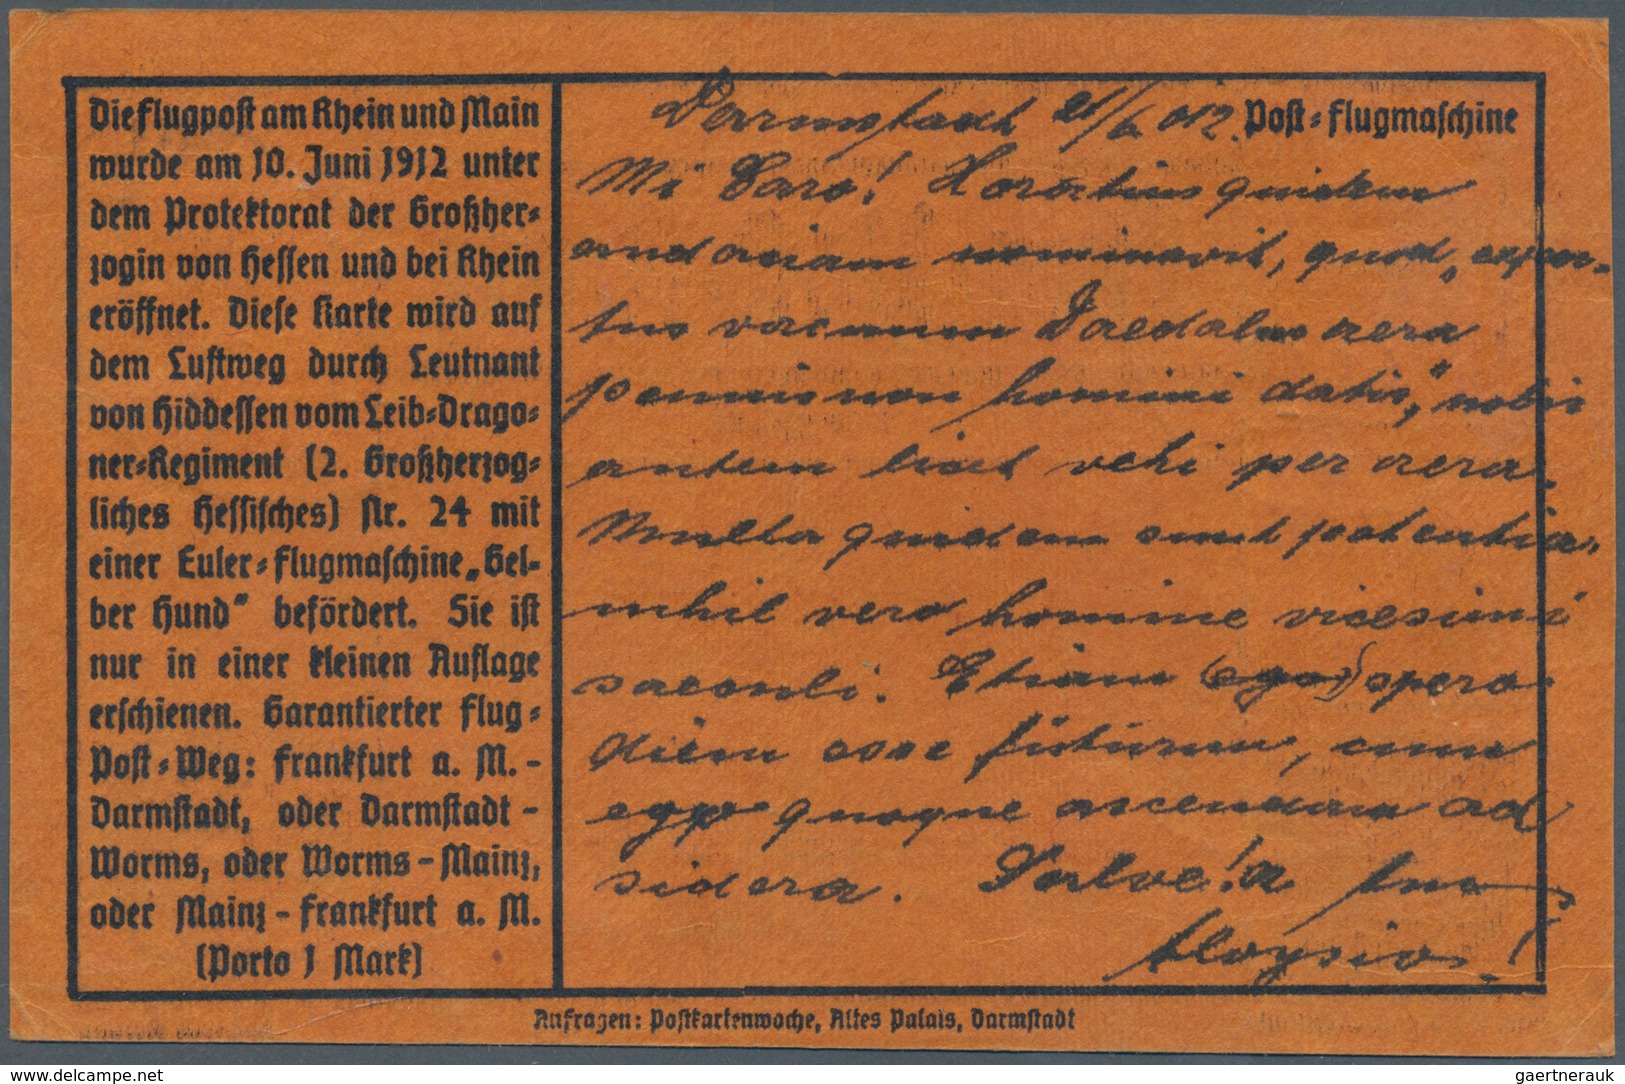 Die Flugpost am Rhein und Main
wurde am 10. Juni 1912 unter
dem Protektorat der Großher-
zogin von Hessen und bei Rhein
eröffnet. Diese Karte wird auf
dem Luftweg durch Leutnant
von Hiddessen vom Leib-Drago-
ner-Regiment (2. Großherzog-
liches Hessisches) Nr. 24 mit
einer Euler-Flugmaschine „Gel-
ber Hund" befördert. Sie ist
nur in einer kleinen Auflage
erschienen. Garantierter Flug-
Post-Weg: Frankfurt a. M. -
Darmstadt, oder Darmstadt -
Worms, oder Worms - Mainz,
oder Mainz - Frankfurt a. M.
(Porto 1 Mark)
Post-Flugmaschine
Darmstadt 21/6 012.
Mi Care! Horatius quidem
audaciam nominavit, quod „exper-
tus vacuum Daedalus aera
pennis non homini datis," nobis
autem licet vehi per aera.
Multa quidem sunt potentia,
nihil vero homine vicesimi
saeculi. Etiam (ego) spero
diem esse futurum, cum
ego quoque ascendam ad
sidera. Salve! a tuo
Aloysio!
Anfragen: Postkartenwoche, Altes Palais, Darmstadt
www.delcampe.net
gaertnerauk